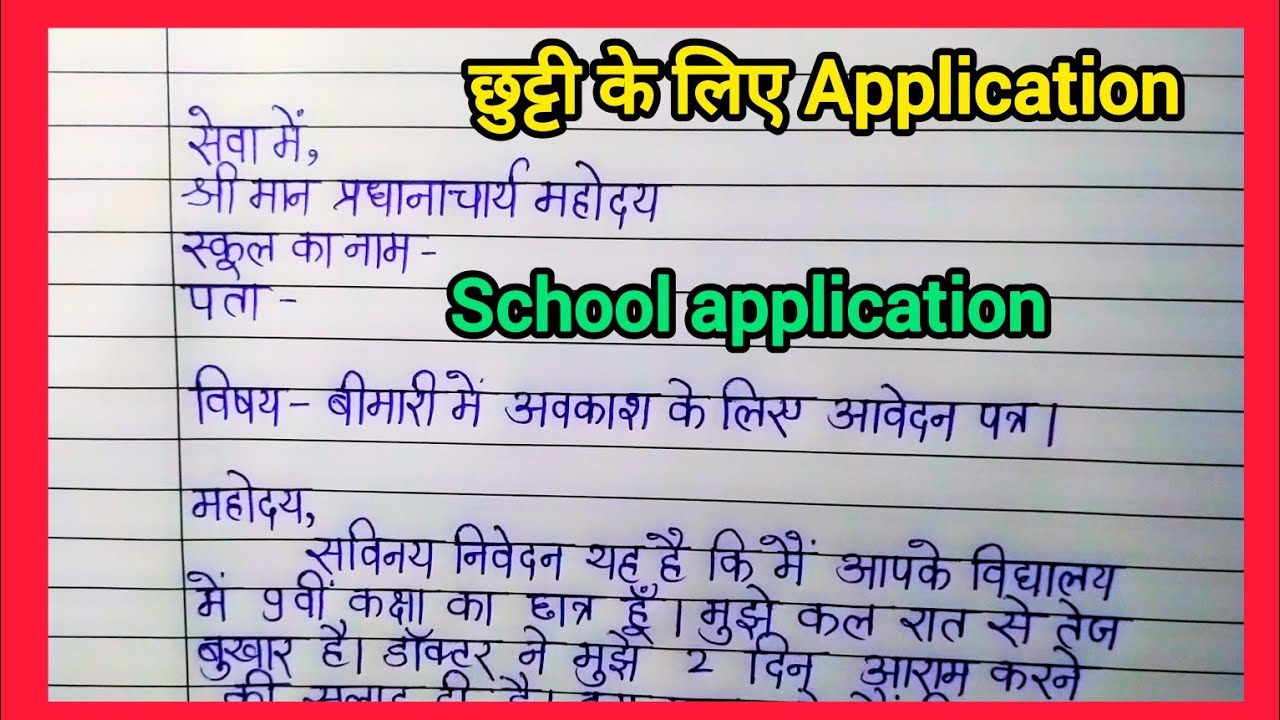 छुट्टी के लिए Application
सेवा में,
श्री मान प्रधानाचार्य महोदय
स्कूल का नाम -
पता -
School application
विषय - बीमारी में अवकाश के लिए आवेदन पत्र।
महोदय,
सविनय निवेदन यह है कि मैं आपके विद्यालय
में 9वीं कक्षा का छात्र हूँ। मुझे कल रात से तेज
बुखार है। डॉक्टर ने मुझे 2 दिन आराम करने
की सलाह दी है।